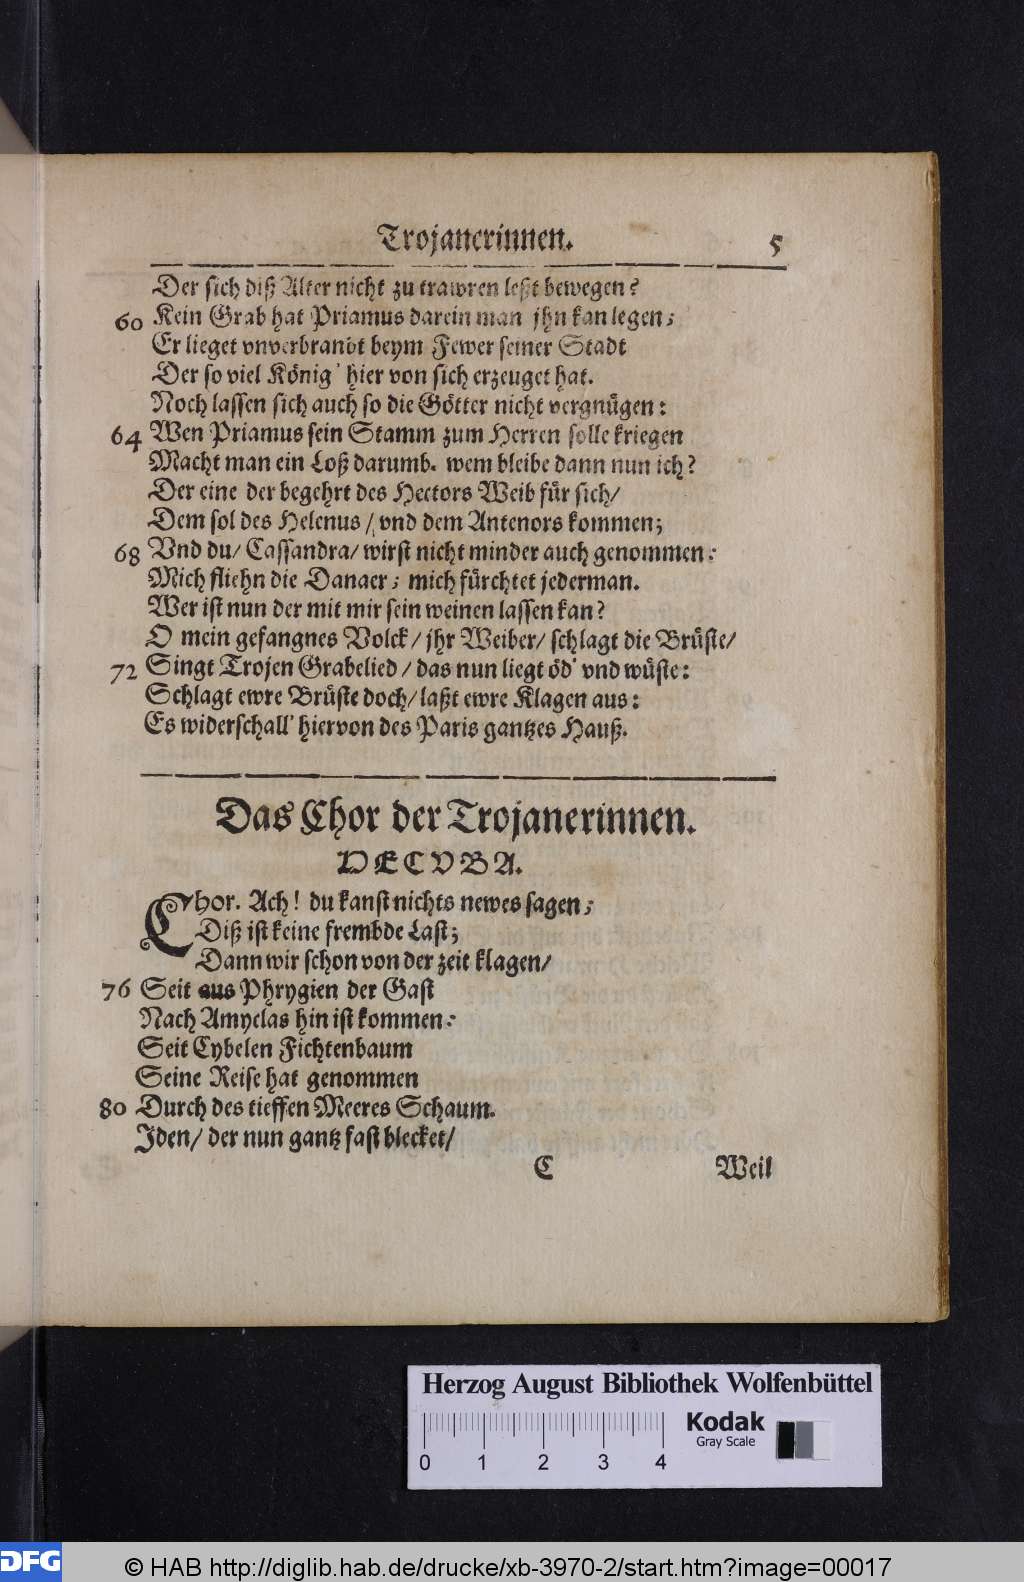 Trojanerinnen. 5
Der sich diß Alter nicht zu trawren leßt bewegen?
60 Kein Grab hat Priamus darein man jhn kan legen;
Er lieget vnverbrandt beym Fewer seiner Stadt
Der so viel König' hier von sich erzeuget hat.
Noch lassen sich auch so die Götter nicht vergnügen:
64 Wen Priamus sein Stamm zum Herren solle kriegen
Macht man ein Loß darumb. wem bleibe dann nun ich?
Der eine der begehrt des Hectors Weib für sich/
Dem sol des Helenus / vnd dem Antenors kommen;
68 Vnd du/ Cassandra/ wirst nicht minder auch genommen:
Mich fliehn die Danaer; mich fürchtet jederman.
Wer ist nun der mit mir sein weinen lassen kan?
O mein gefangnes Volck/ jhr Weiber/ schlagt die Brüste/
72 Singt Trojen Grabelied / das nun liegt öd' vnd wüste:
Schlagt ewre Brüste doch/ laßt ewre Klagen aus:
Es widerschall' hiervon des Paris gantzes Hauß.
Das Chor der Trojanerinnen.
HECVBA.
Chor. Ach! du kanst nichts newes sagen;
Diß ist keine frembde Last;
Dann wir schon von der zeit klagen/
76 Seit aus Phrygien der Gast
Nach Amyclas hin ist kommen:
Seit Cybelen Fichtenbaum
Seine Reise hat genommen
80 Durch des tieffen Meeres Schaum.
Iden/ der nun gantz fast blecket/
C Weil
Herzog August Bibliothek Wolfenbüttel
Kodak
Gray Scale
0 1 2 3 4
DFG © HAB http://diglib.hab.de/drucke/xb-3970-2/start.htm?image=00017